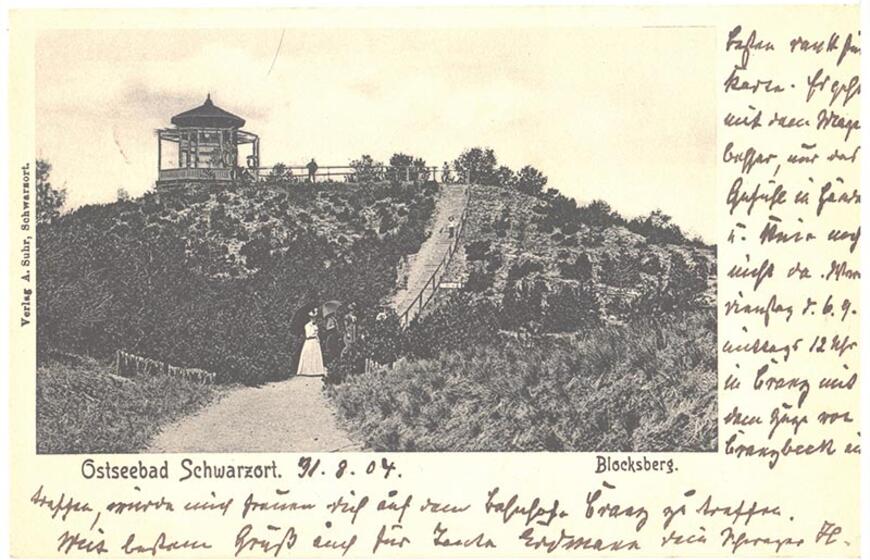 Verlag A. Suhr, Schwarzort.
Besten Dank für
Karte. Es geht
mit dem Magen
besser, nur das
Gefühl in Hände
u. Knie noch
nicht da. Werde
Dienstag d. 6.9.
mittags 12 Uhr
in Cranz mit
dem Zuge von
Cranzbeek ein
Ostseebad Schwarzort. 31. 8. 04.
Blocksberg.
treffen, würde mich freuen dich auf dem Bahnhofe Cranz zu treffen.
Mit bestem Gruß auch für Tante Erdmann dein Schwager H.